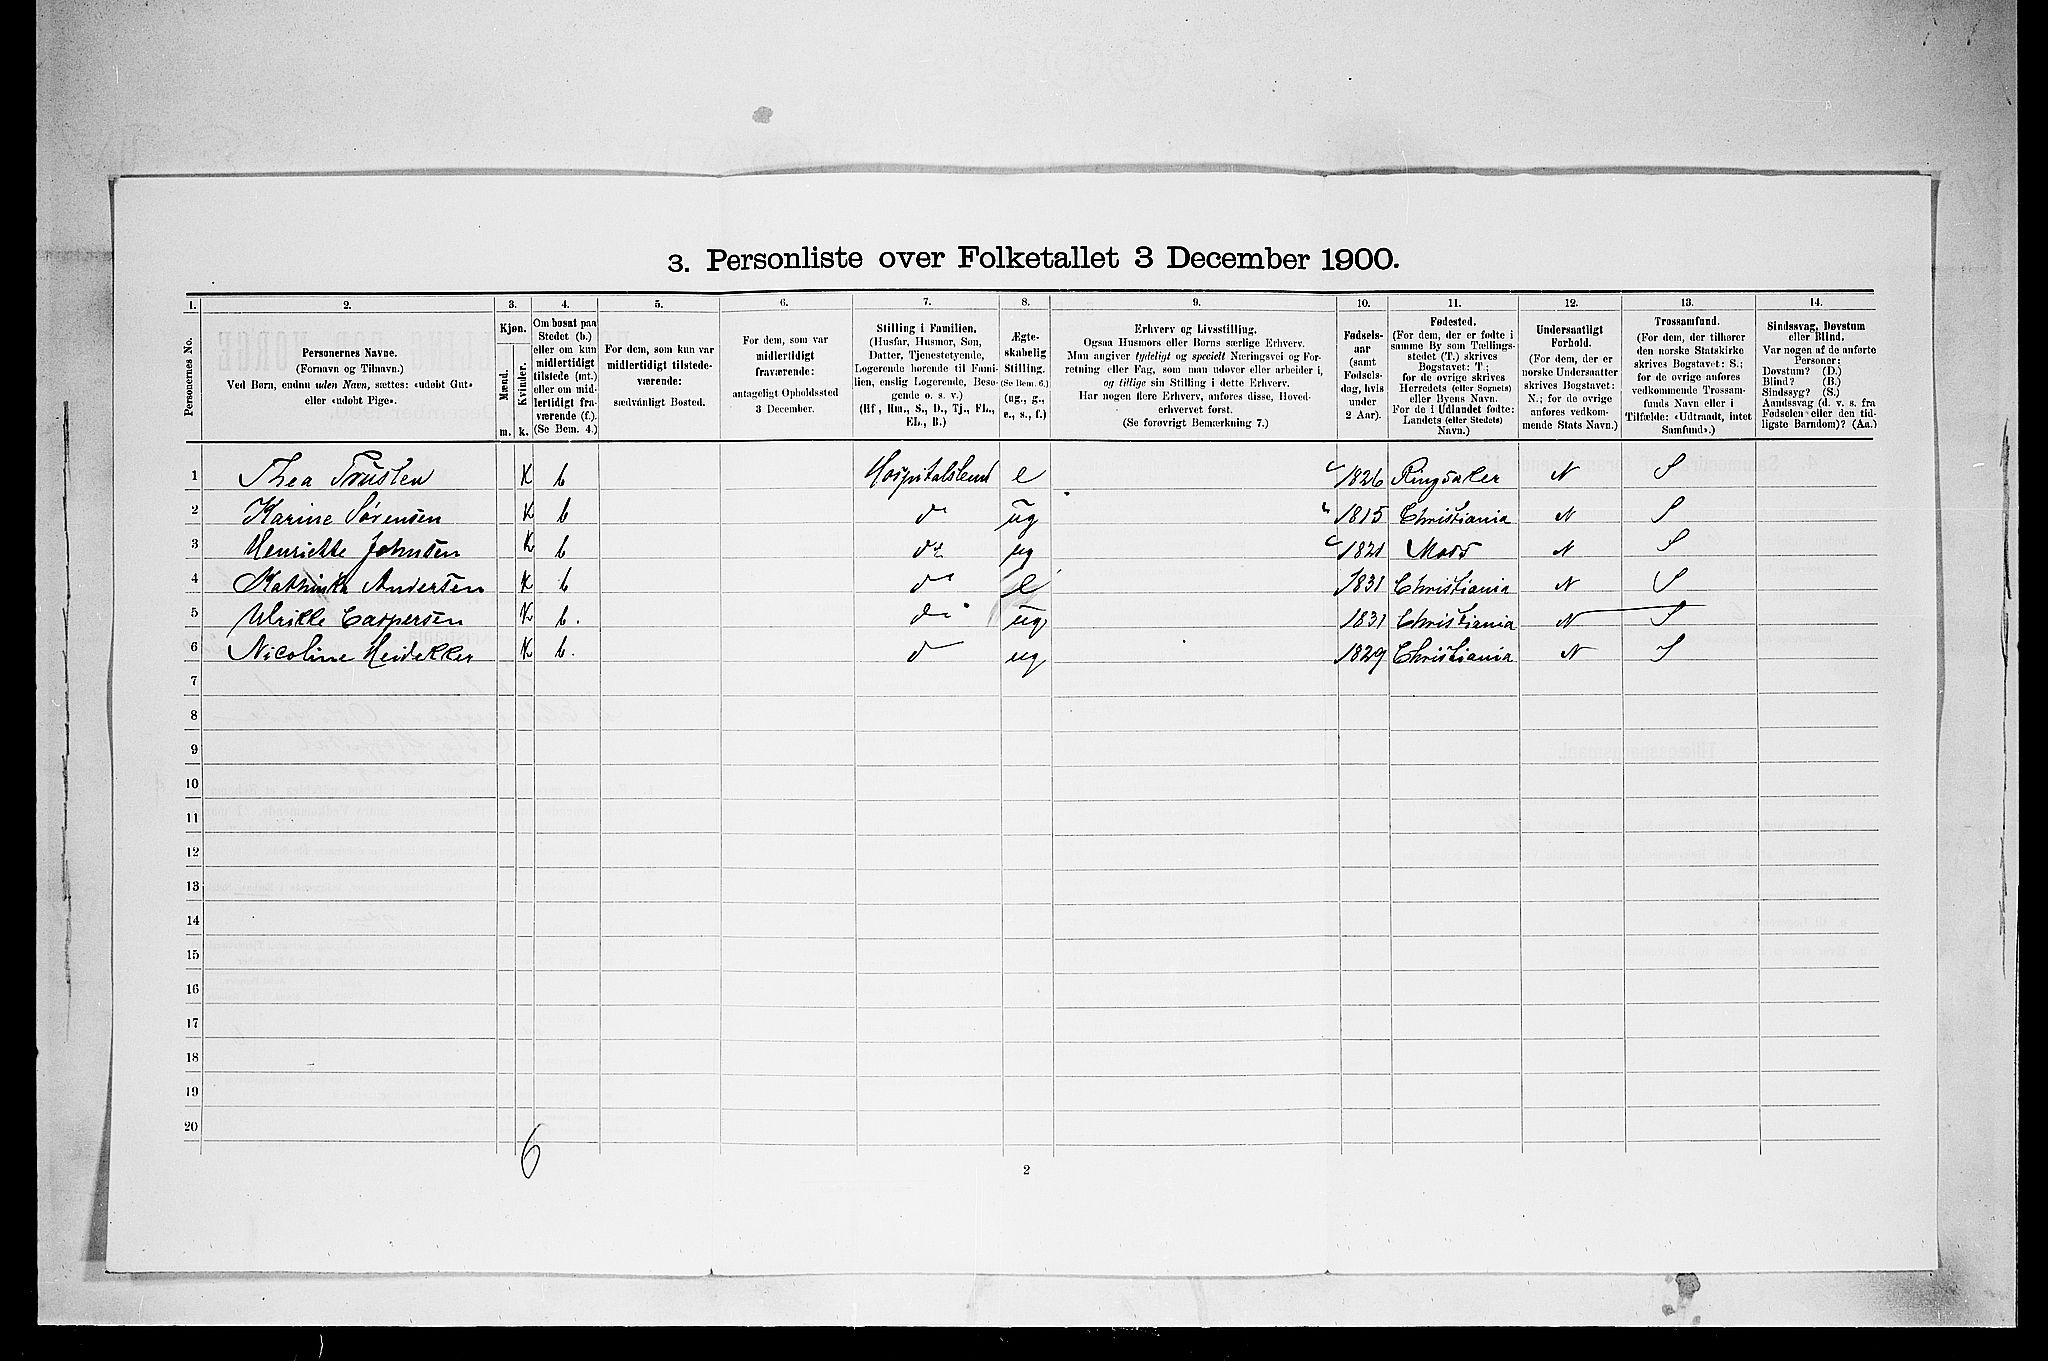 3. Personliste over Folketallet 3 December 1900.
1. 2. 3. 4. 5. 6. 7. 8. 9. 10. 11. 12. 13. 14.
Personernes No.
Personernes Navne.
(Fornavn og Tilnavn.)
Ved Børn, endnu uden Navn, sættes: «udøbt Gut»
eller «udøbt Pige».
Kjøn.
Mænd.
Kvinder.
m. k.
Om bosat paa
Stedet (b.)
eller om kun
midlertidigt
tilstede (mt.)
eller om mid-
lertidigt fra-
værende (f.).
(Se Bem. 4.)
For dem, som kun var
midlertidigt tilstede-
værende:
sædvänligt Bosted.
For dem, som var
midlertidigt
fraværende:
antageligt Opholdssted
3 December.
Stilling i Familien.
(Husfar, Husmor, Søn,
Datter, Tjenestetyende,
Logerende hørende til Fami-
lien, enslig Logerende, Besø-
gende o. s. v.)
(Hf, Hm., S., D., Tj., FL.,
EL., B.)
Ægte-
skabelig
Stilling.
(Se Bem. 6.)
(ug., g.,
e., s., f.)
Erhverv og Livsstilling.
Ogsaa Husmors eller Børns særlige Erhverv.
Man angiver tydeligt og specielt Næringsvei og For-
retning eller Fag, som man udøver eller arbeider i,
og tillige sin Stilling i dette Erhverv.
Har nogen flere Erhverv, anføres disse, Hoved-
erhvervet først.
(Se forøvrigt Bemærkning 7.)
Fødsels-
aar
(samt
Fødsels-
dag, hvis
under
2 Aar).
Fødested.
(For dem, der er fødte i
samme By som Tællings-
stedet (T.) skrives
Bogstavet: T.;
for de øvrige skrives
Herredets (eller Sognets)
eller Byens Navn.
For de i Udlandet fødte:
Landets (eller Stedets)
Navn.)
Undersaatligt
Forhold.
(For dem, der er
norske Undersaatter
skrives Bogstavet:
N.; for de øvrige
anføres vedkom-
mende Stats Navn.)
Trossamfund.
(For dem, der tilhører
den norske Statskirke
skrives Bogstavet: S.;
for de øvrige anføres
vedkommende Trossam-
funds Navn eller i
Tilfælde: «Udtraadt, intet
Samfund».)
Sindssvag, Døvstum
eller Blind.
Var nogen af de anførte
Personer:
Døvstum? (D.)
Blind? (B.)
Sindssyg? (S.)
Aandssvag (d. v. s. fra
Fødselen eller den tid-
ligste Barndom)? (Aa.)
1 Thea Trusten K b Hospitalslem e 1826 Ringsaker N S
2 Karine Sørensen K b do ug 1815 Christiania N S
3 Henriette Johnsen K b do ug 1821 Moss N S
4 Kathinka Andersen K b do e 1831 Christiania N S
5 Ulrikke Caspersen K b. do ug 1831 Christiania N S
6 Nicoline Heidekker K b. do ug 1829 Christiania N S
7
8
9
10
11
12
13
14
15
16
17
18
19
20
6
2